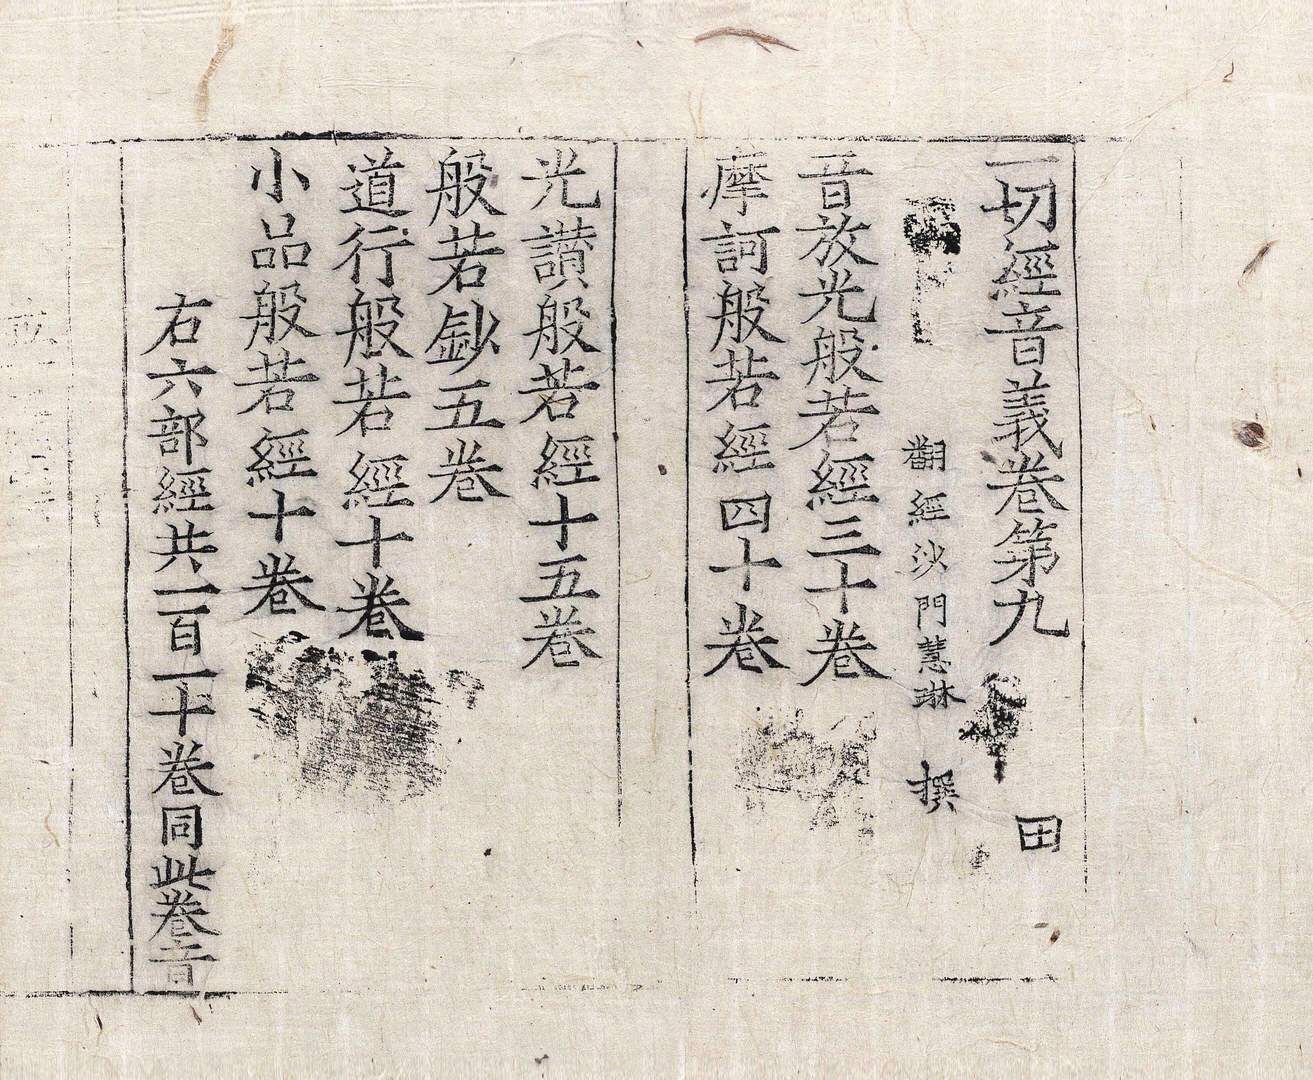 一切經音義卷第九 田
翻經沙門慧琳 撰
音放光般若經三十卷
摩訶般若經四十卷
光讃般若經十五卷
般若鈔五卷
道行般若經十卷
小品般若經十卷
右六部經共一百一十卷同此卷音